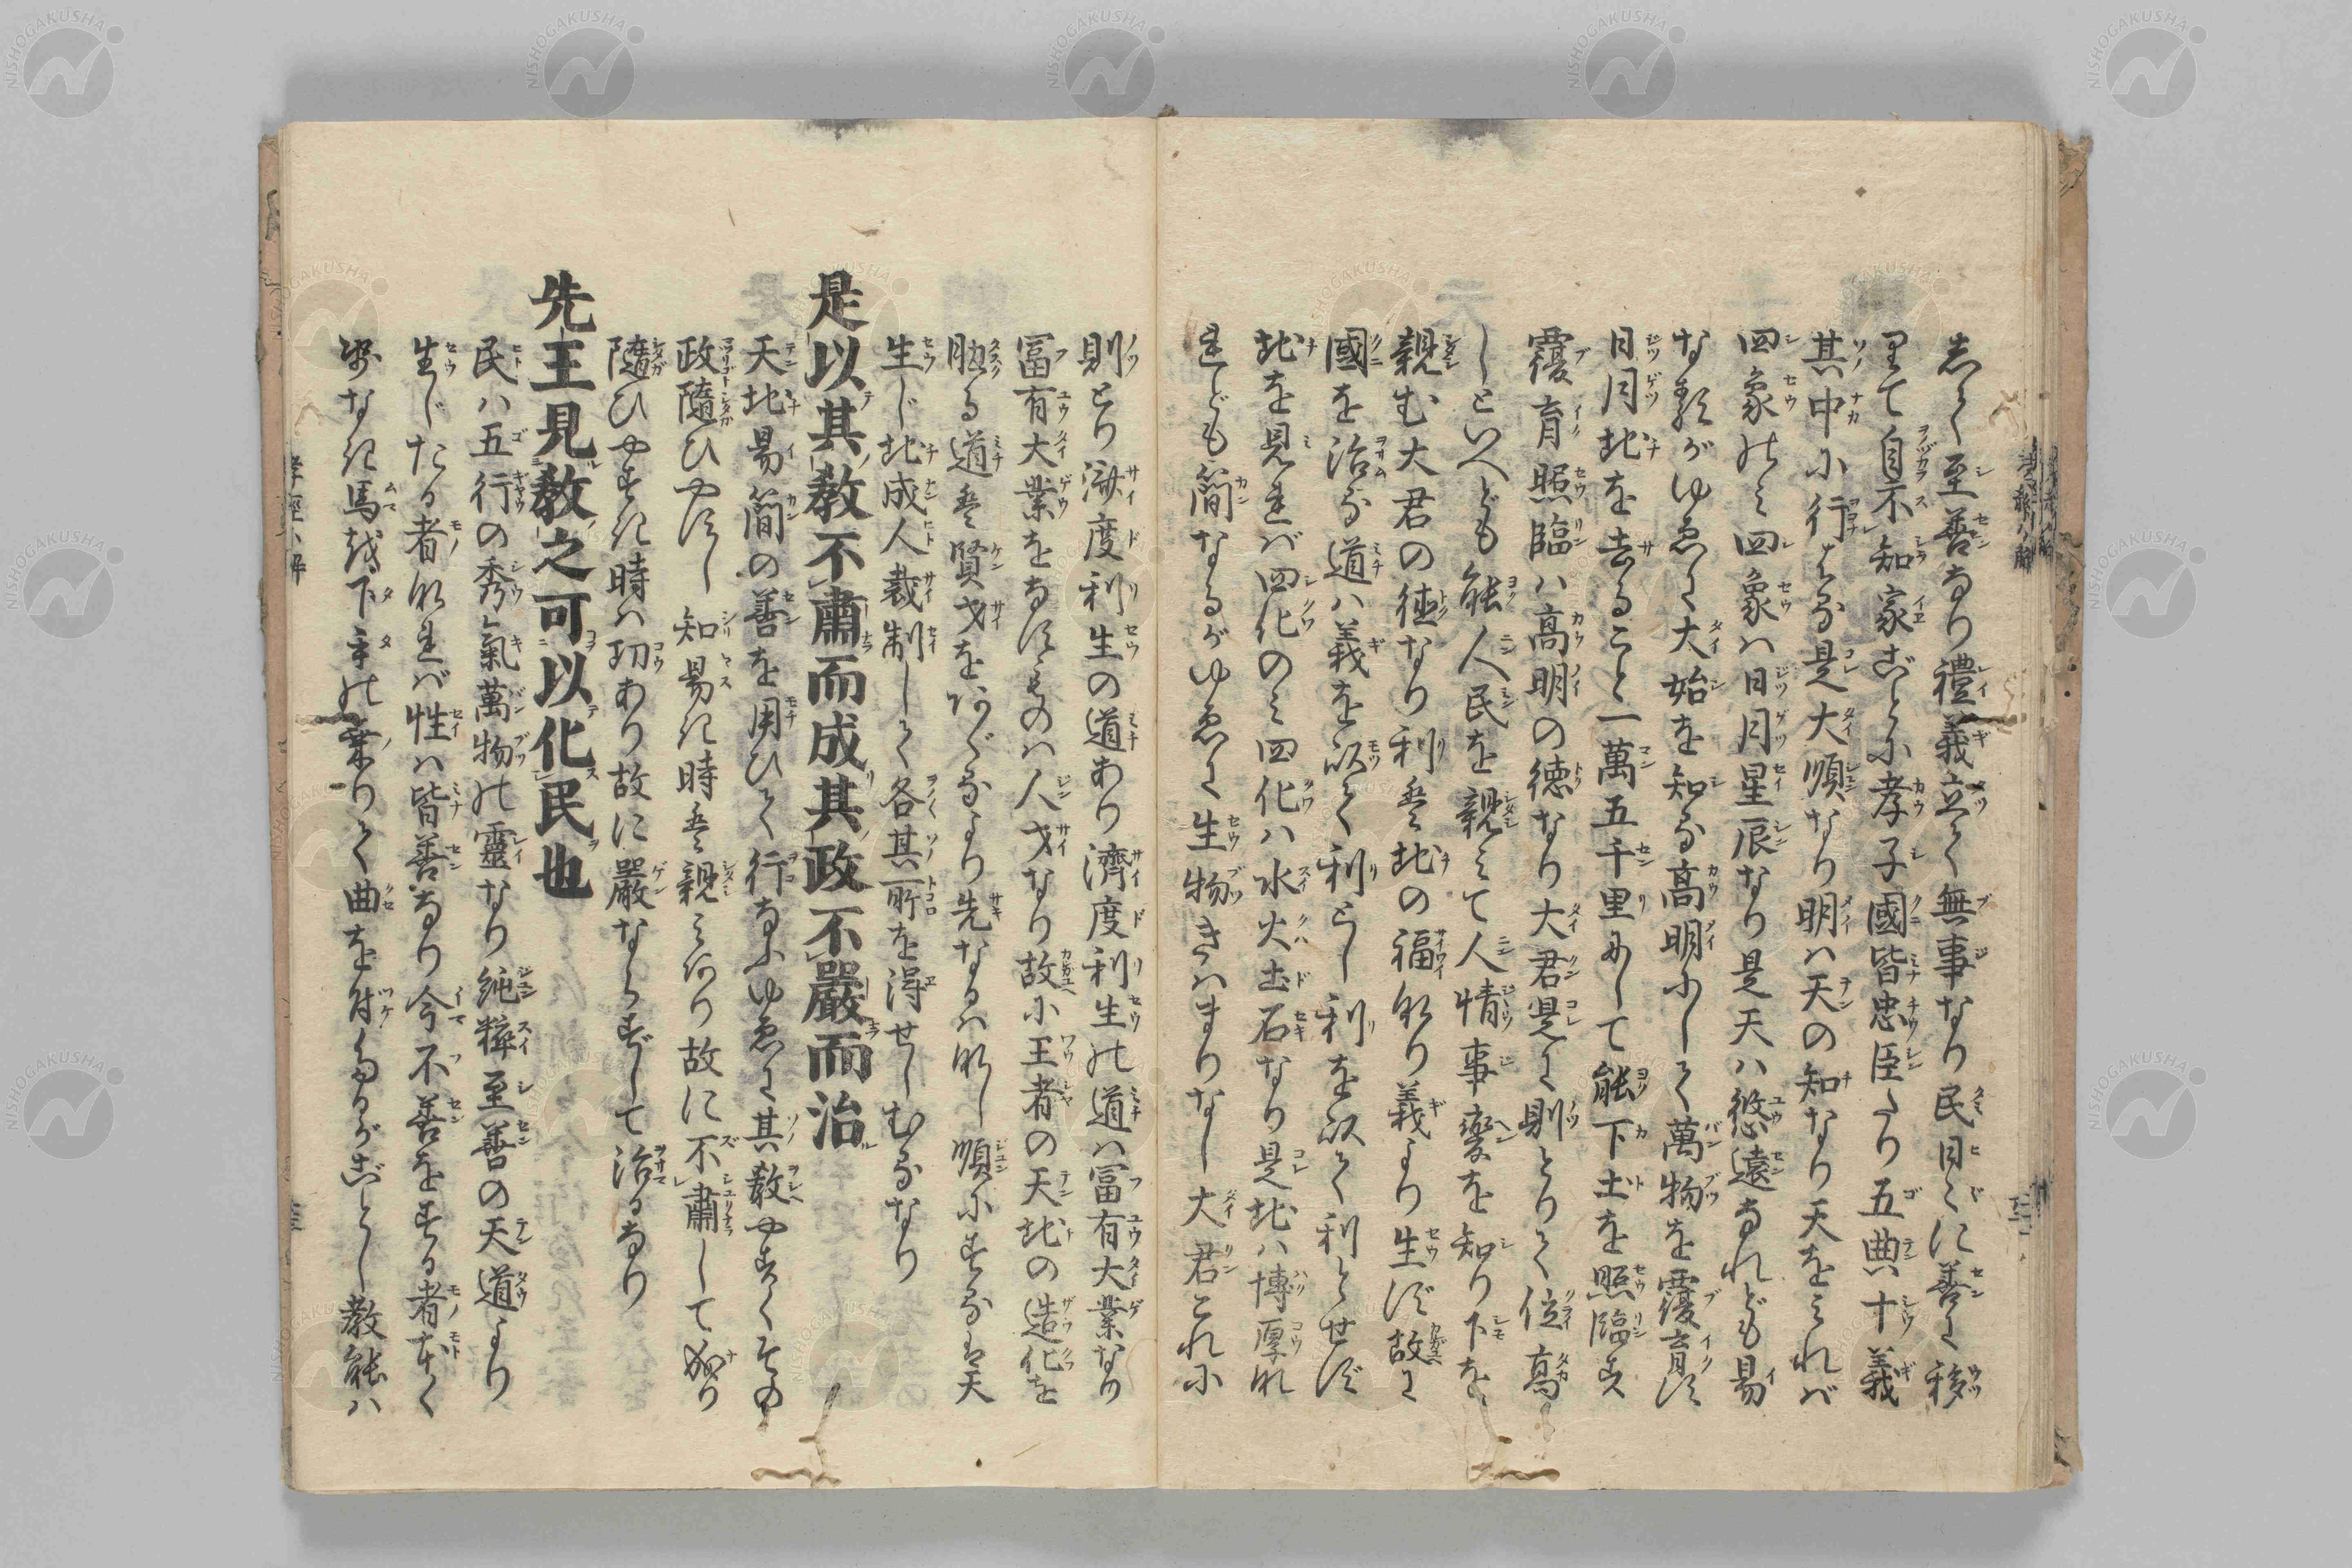 志て至善なり禮義立て無事なり民日ゝに善に移
りて自不知家ごとに孝子國皆忠臣たり五典十義
其中に行はる是大順なり明ハ天の知なり天をみれバ
四象のミ四象ハ日月星辰なり是天ハ悠遠なれども易
なるがゆゑに大始を知る高明にして萬物を覆育す
日月地を去ること一萬五千里にして能下土を照臨す
覆育照臨ハ高明の徳なり大君是に則とりて位高
しといへども能人民を親ミて人情事變を知り下を
親む大君の徳なり利は地の福なり義より生ず故に
國を治る道ハ義を以て利とし利を以て利とせず
地を見れバ四化のミ四化ハ水火土石なり是地ハ博厚な
れども簡なるがゆゑに生物きハまりなし大君これに
則とり済度利生の道あり濟度利生の道ハ冨有大業なり
冨有大業をなすものハ人才なり故に王者の天地の造化を
助る道は賢才をあぐるより先なるハなし順にするは天
生じ地成人裁制して各其所を得せしむるなり
是以其教不肅而成其政不嚴而治
天地易簡の善を用ひて行なふゆゑに其教やすくその
政隨ひやすし知易き時は親ミあり故に不肅して成り
隨ひやすき時ハ功あり故に嚴ならずして治るなり
先王見教之可以化民也
民ハ五行の秀氣萬物の靈なり純粹至善の天道より
生じたる者なれバ性ハ皆善なり今不善をする者本く
なき馬を下手の乗りて曲を付たるがごとし教能ハ